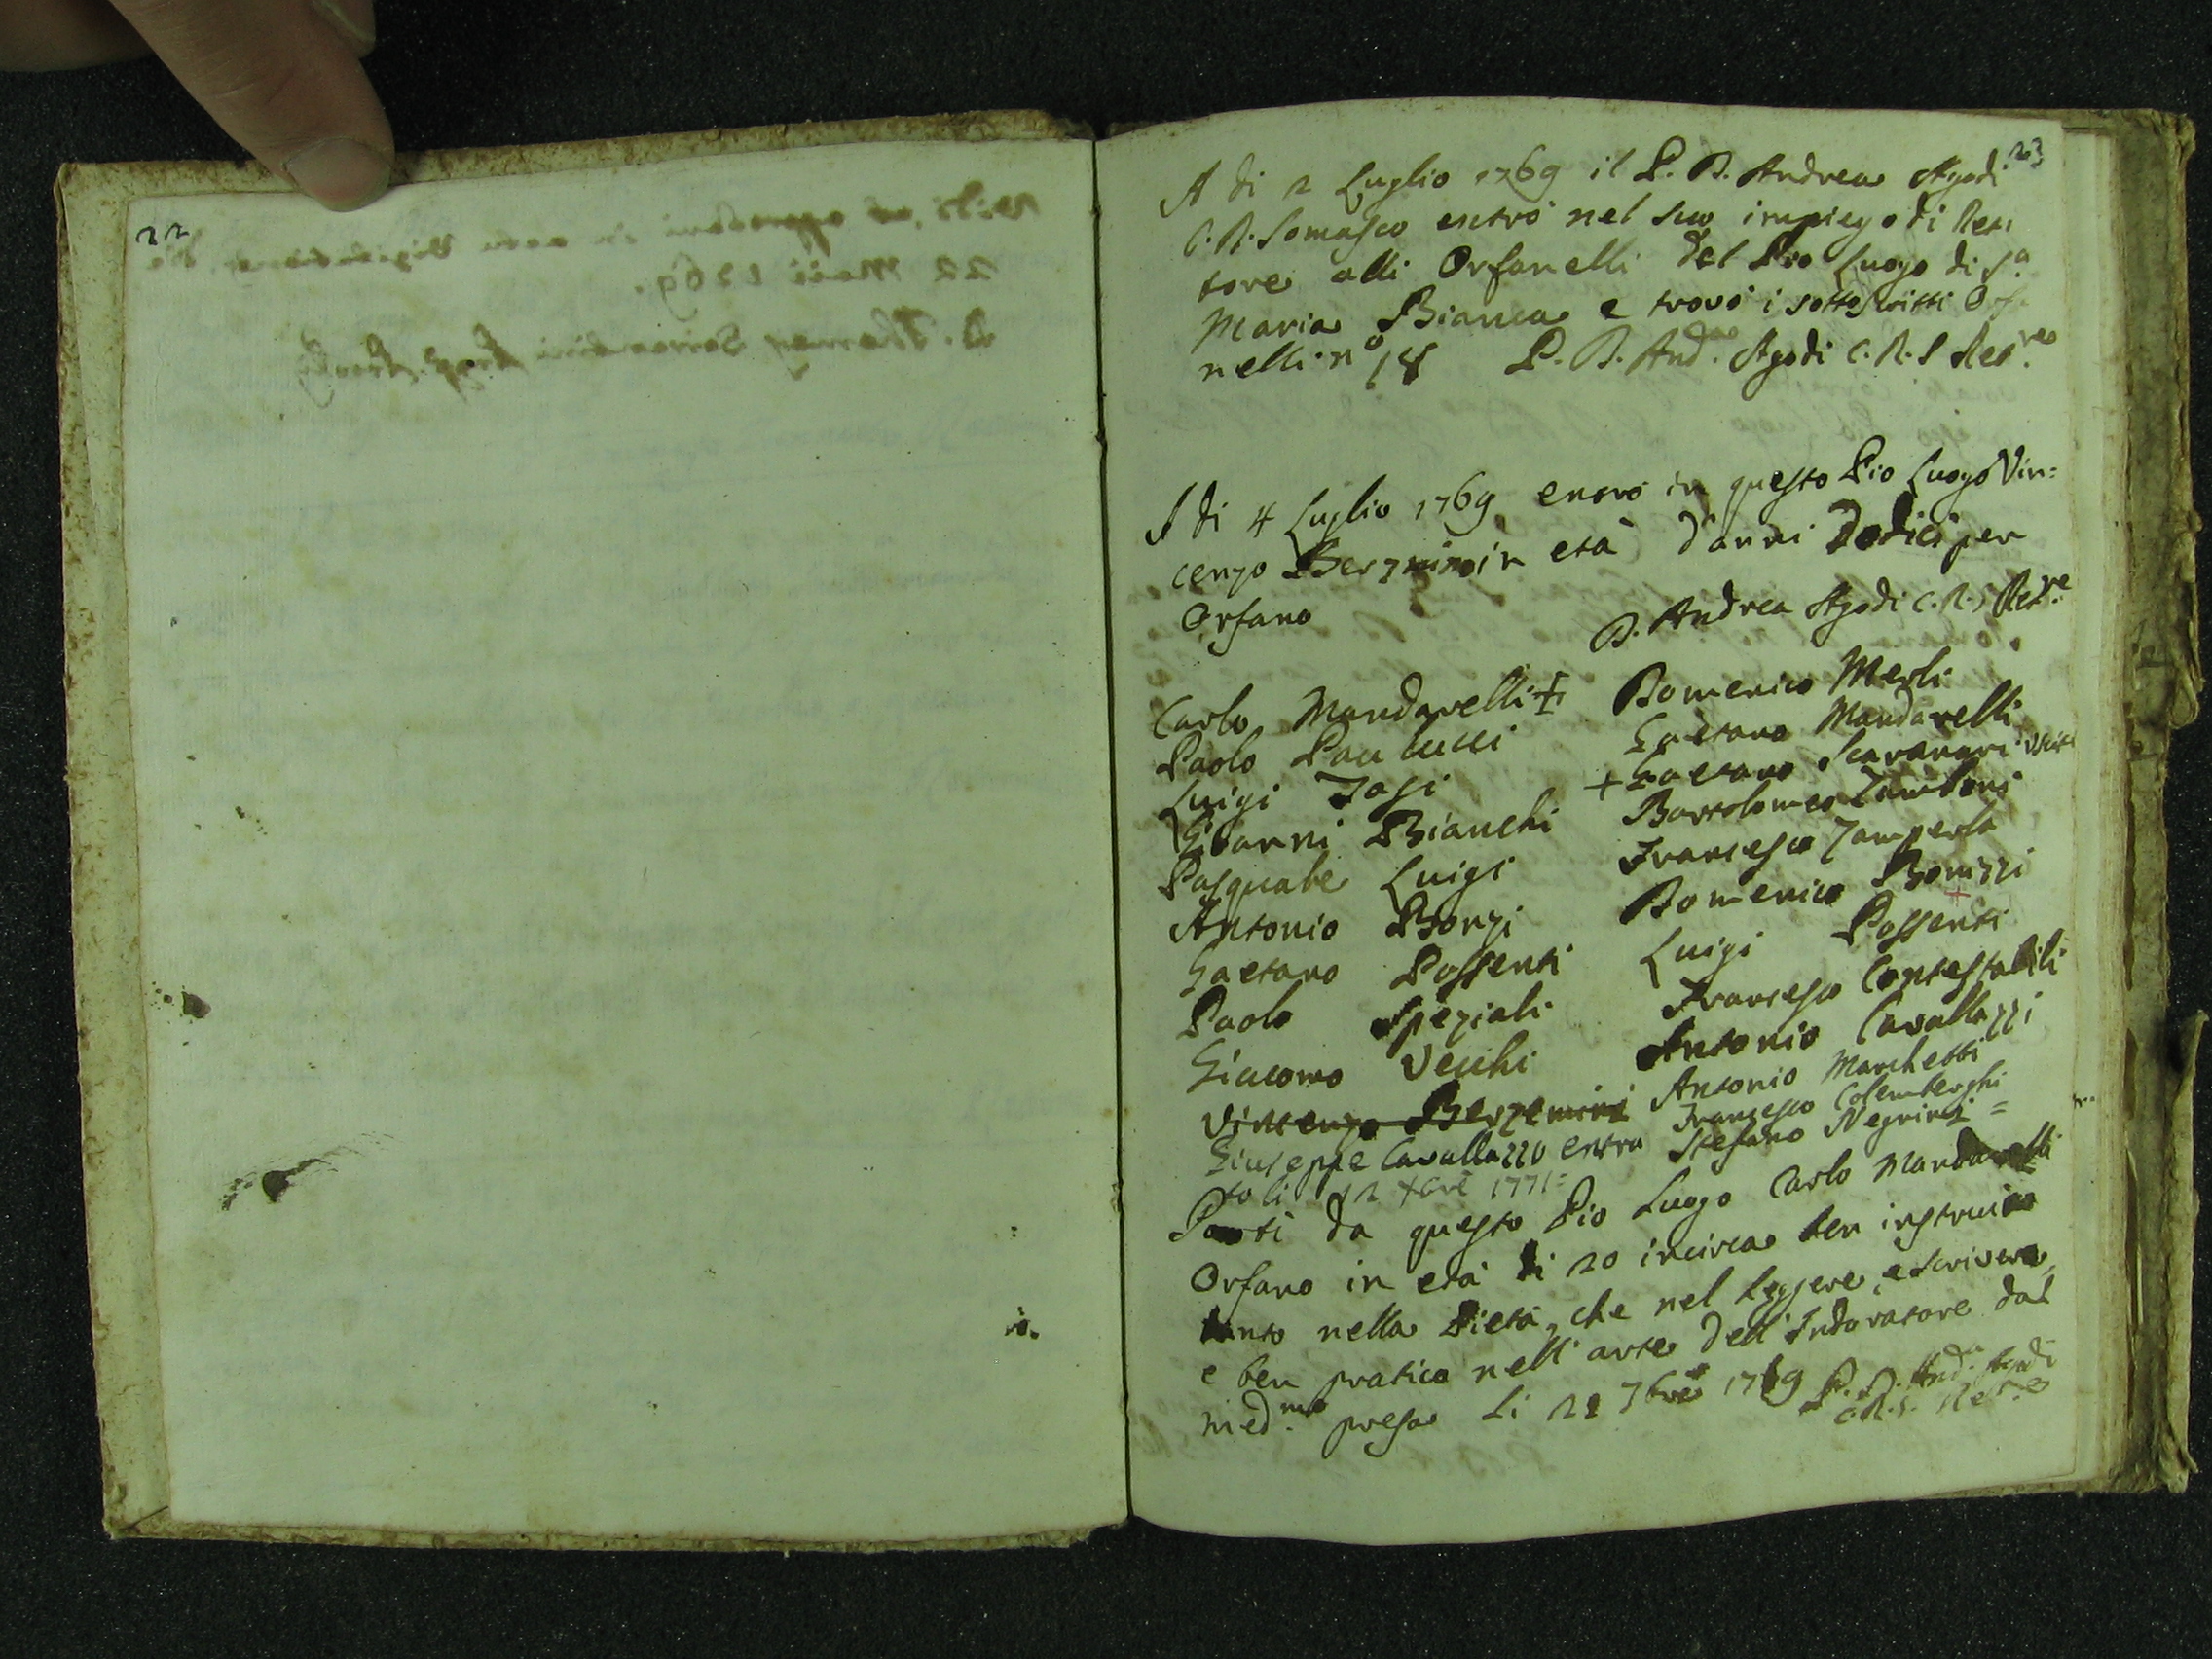 22
23
A di 2 Luglio 1769 il P. D. Andrea Agodi
C. R. Somasco entrò nel suo impiego di Ret
tore alli Orfanelli del Pio Luogo di S.a
Maria Bianca e trovò i sottoscritti Orf
nelli n.o 18 P. D. And.a Agodi C. R. S Ret.re
A di 4 Luglio 1769 entrò in questo Pio Luogo Vin=
cenzo in età d'anni Dodici per
Orfano
D. Andrea Agodi C. R. S Ret.re
Carlo Mandarelli +
Paolo Paulucci
Luigi Jasi
Gioanni Bianchi
Pasquale Luigi
Antonio Bonzi
Gaetano Possenti
Paolo Speziali
Giacomo Vecchi
Vincenzo Berzemini
Giuseppe Cavallazzo entra
to li 12 xbre 1771=
Domenico Merli
Gaetano Mandarelli
+ Gaetano Scavanari
Bartolomeo Zamboni
Francesco Zamperla
Domenico Bonizzi
Luigi Possenti
Francesco Contestabili
Antonio Cavallazzi
Antonio Marchetti
Francesco Colemberghi
Stefano Negrini =
Partì da questo Pio Luogo Carlo Mandarelli
Orfano in età di 20 incirca ben instruito
tanto nella Pietà, che nel leggere, e scrivere,
e ben pratico nell'arte dell'Indoratore dal
med.mo presa Li 21 7bre 1769 P. D. And.a Agodi
C. R. S. Ret.e